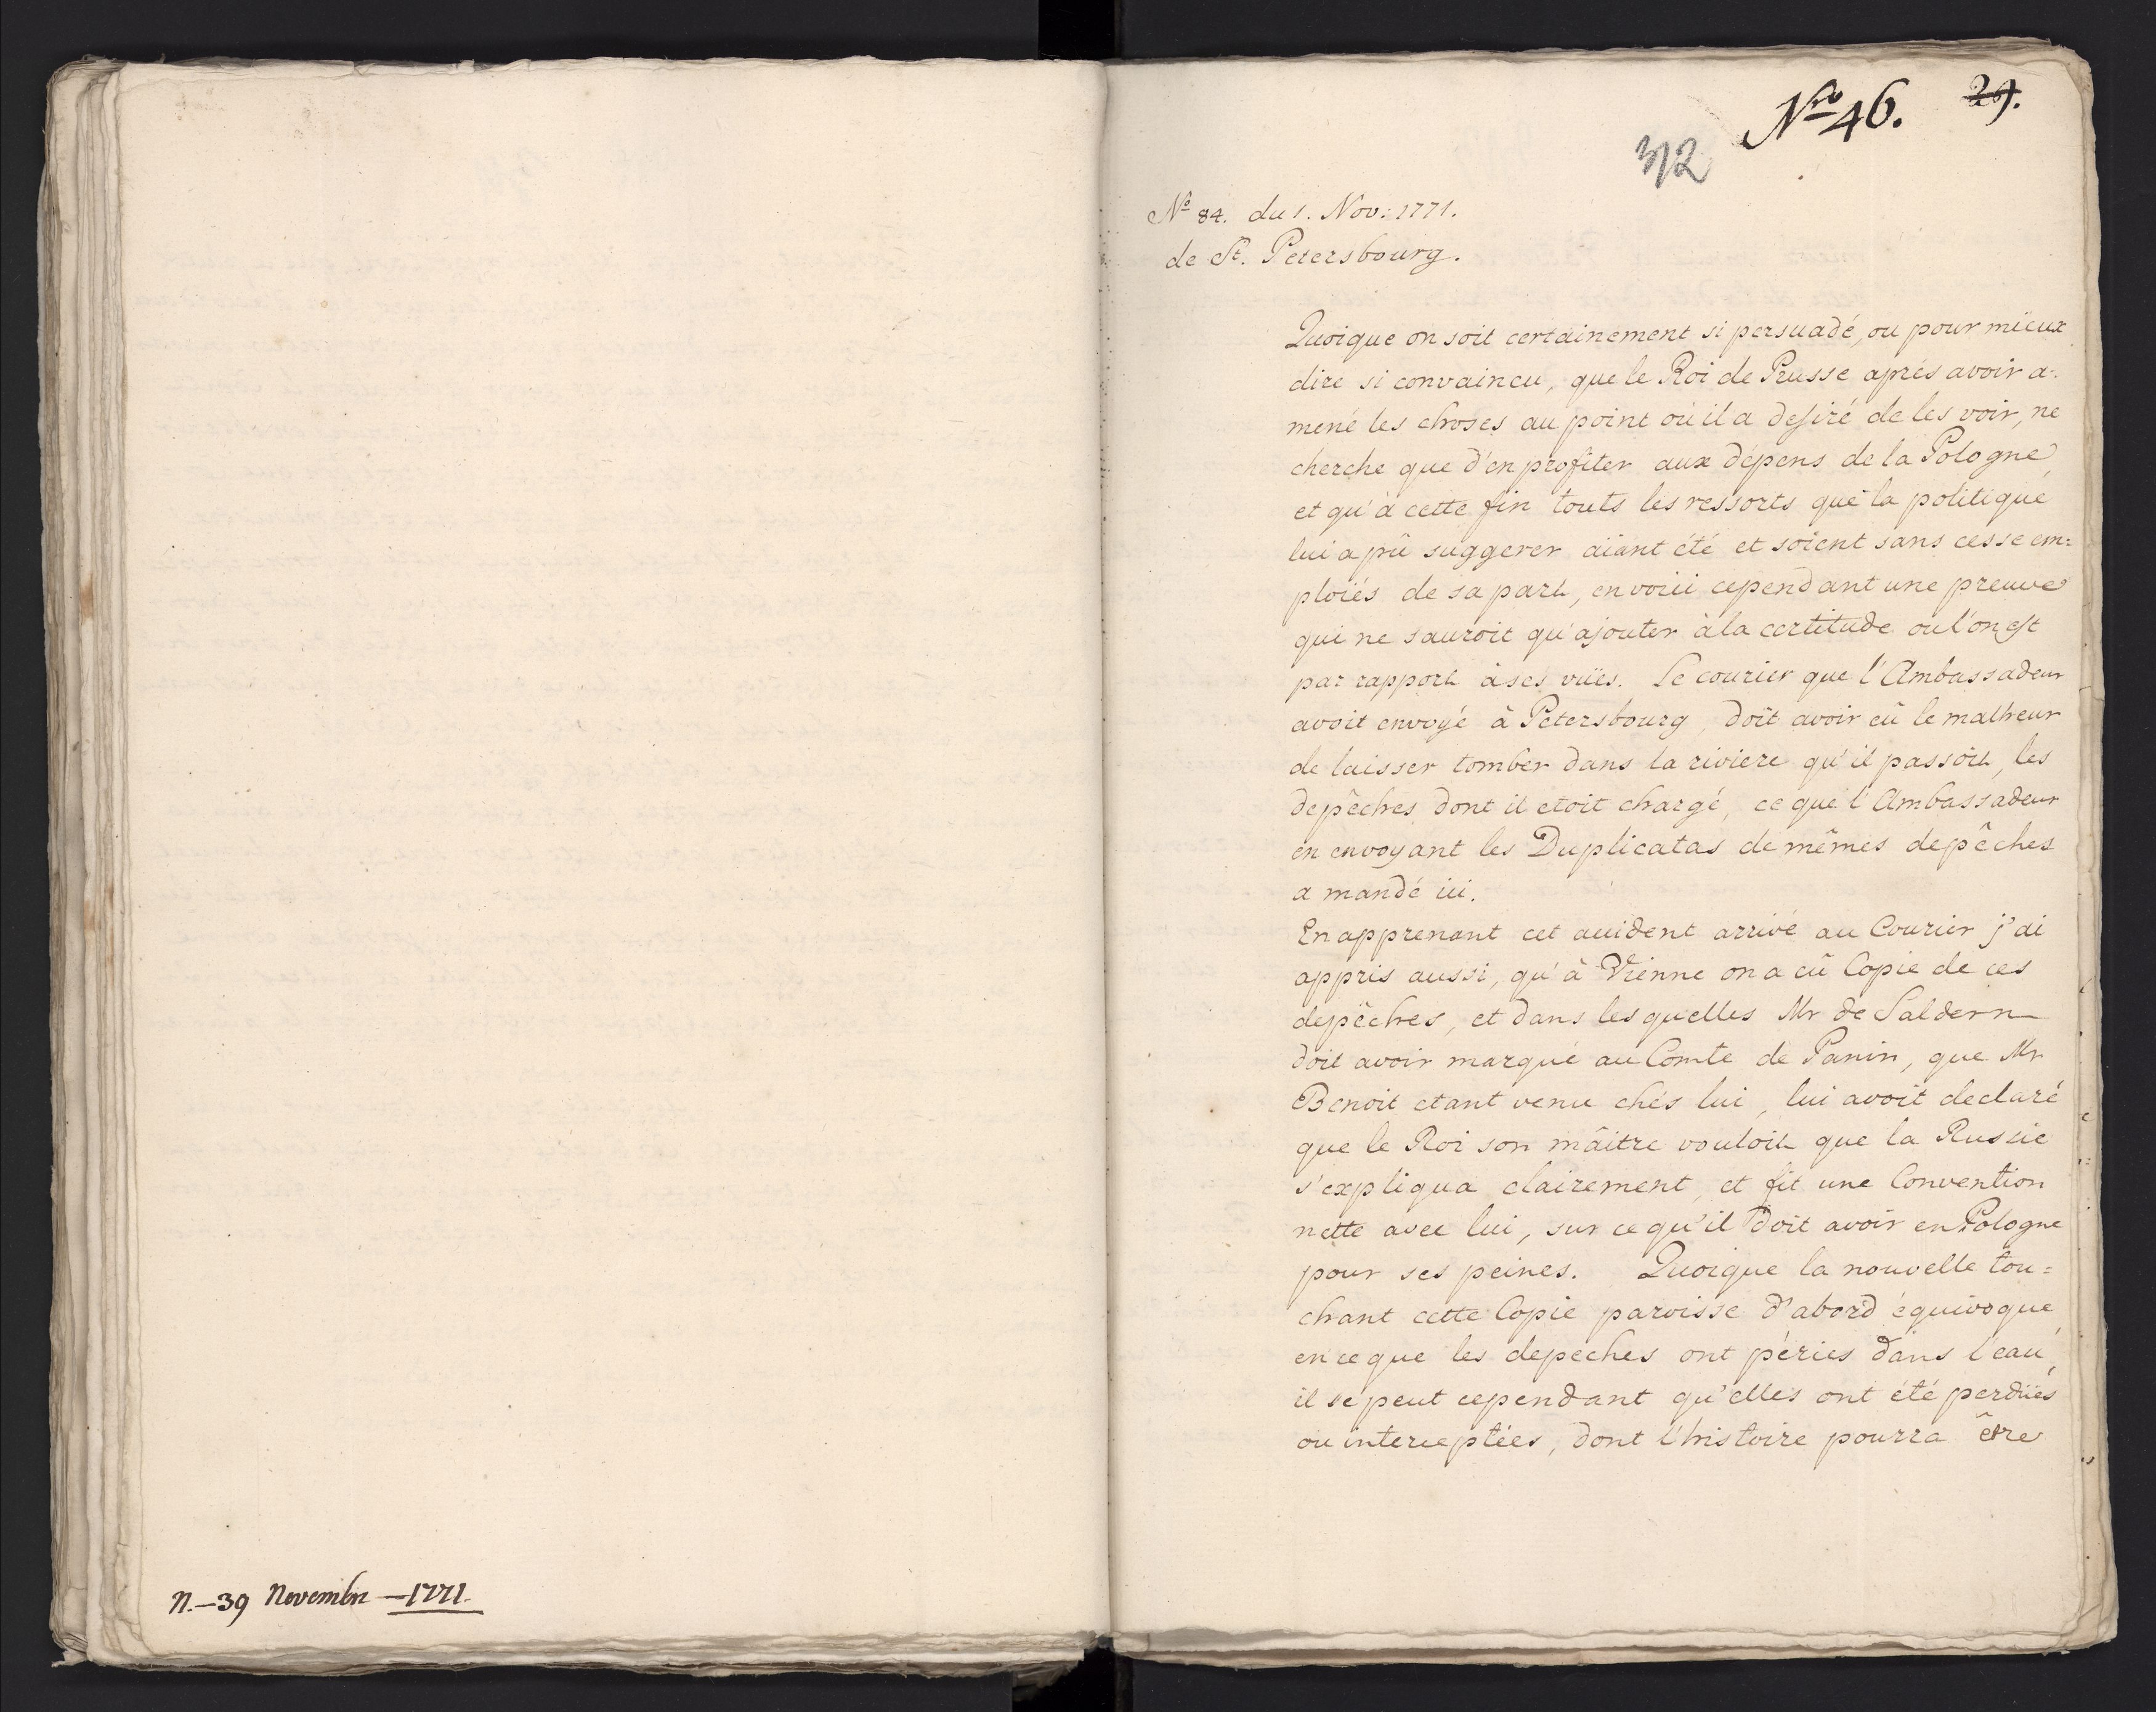 N.–39 Novembr –1771.
Nro 46. 29.
312
No 84. du 1. Nov: 1771.
de St. Petersbourg.
Quoique on soit certainement si persuadé, ou pour mieux
dire si convaincu, que le Roi de Prusse aprés avoir a-
mené les choses au point où il a desiré de les voir, ne
cherche que d'en profiter aux dépens de la Pologne,
et qu'à cette fin touts les ressorts que la politique
lui a pû suggerer aïant été et soient sans cesse em=
ploiés de sa part, en voici cependant une preuve
qui ne sauroit qu'ajouter à la certitude ou l'on est
par rapport à ses vües. Le courier que l'Ambassadeur
avoit envoyé à Petersbourg, doit avoir eû le malheur
de laisser tomber dans la riviere qu'il passoit, les
depêches dont il etoit chargé, ce que l'Ambassadeur
en envoyant les Duplicatas de mêmes depêches
a mandé ici.
En apprenant cet accident arrivé au Courier j'ai
appris aussi, qu'à Vienne on a eû Copie de ces
depêches, et dans lesquelles Mr de Saldern
doit avoir marqué au Comte de Panin, que Mr
Benoit etant venu chés lui, lui avoit declaré
que le Roi son mâitre vouloit que la Russie
s'expliqua clairement, et fit une Convention
nette avec lui, sur ce qu'il doit avoir en Pologne
pour ses peines. Quoique la nouvelle tou=
chant cette Copie paroisse d'abord équivoque,
en ce que les depeches ont péries dans l'eau,
il se peut cependant qu'elles ont été perdües
ou interceptées, dont l'histoire pourra être